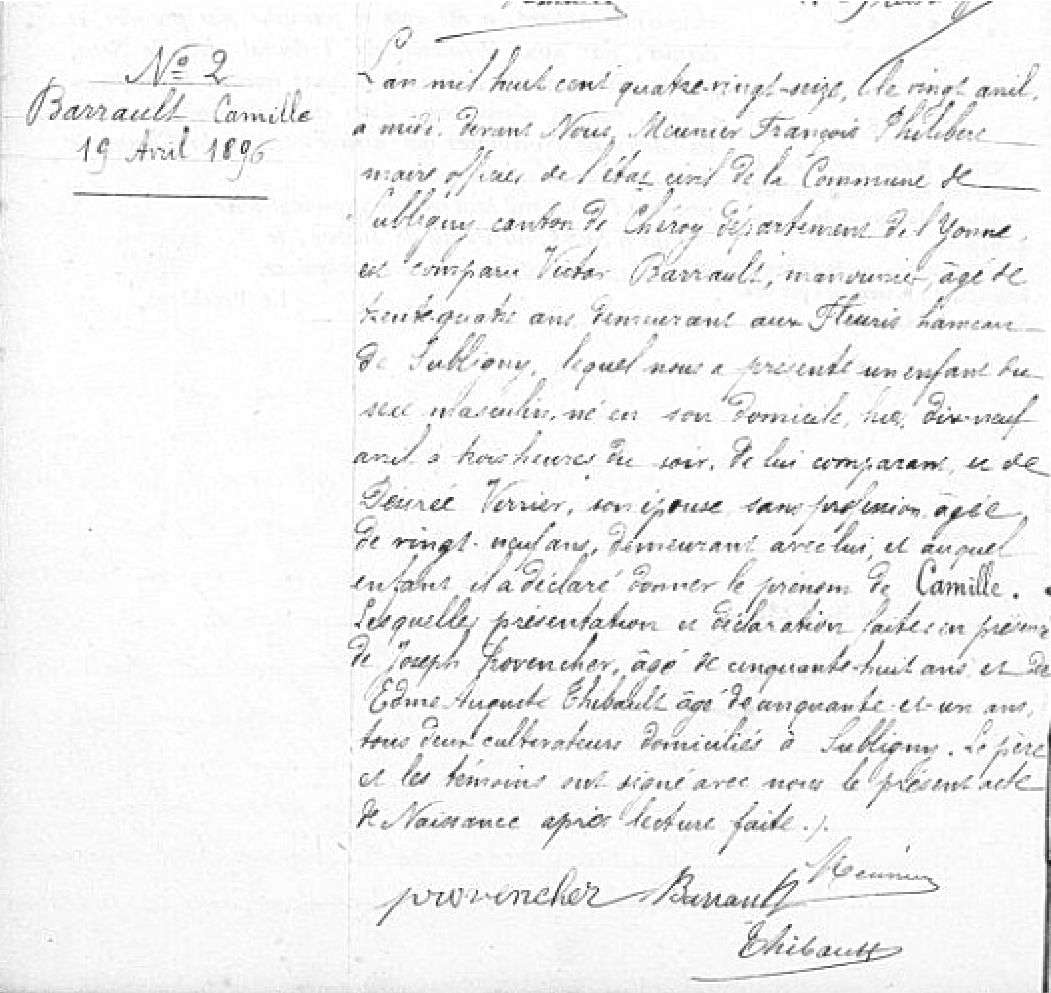 N° 2
Barrault Camille
19 Avril 1896
L'an mil huit cent quatre-vingt-seize, le vingt avril,
a midi. devant Nous, Meunier François Philibert
maire officier de l'état civil de la Commune de
Subligny canton de Chéroy département de l'Yonne,
est comparu Victor Barrault, manouvrier, âgé de
trente-quatre ans demeurant aux Fleuris hameau
de Subligny, lequel nous a présenté un enfant du
sexe masculin, né en son domicile, hier, dix-neuf
avril à trois heures du soir, de lui comparant, et de
Désirée Verrier, son épouse sans profession, âgée
de vingt-neuf ans, demeurant avec lui, et auquel
enfant il a déclaré donner le prénom de Camille.
Lesquelles présentation et déclaration faites en présence
de Joseph Provencher, âgé de cinquante-huit ans et de
Edme Auguste Thibault âgé de cinquante-et-un ans,
tous deux cultivateurs domiciliés à Subligny. Le père
et les témoins ont signé avec nous le présent acte
de Naissance après lecture faite./.
Meunier
provencher Barrault
Thibault